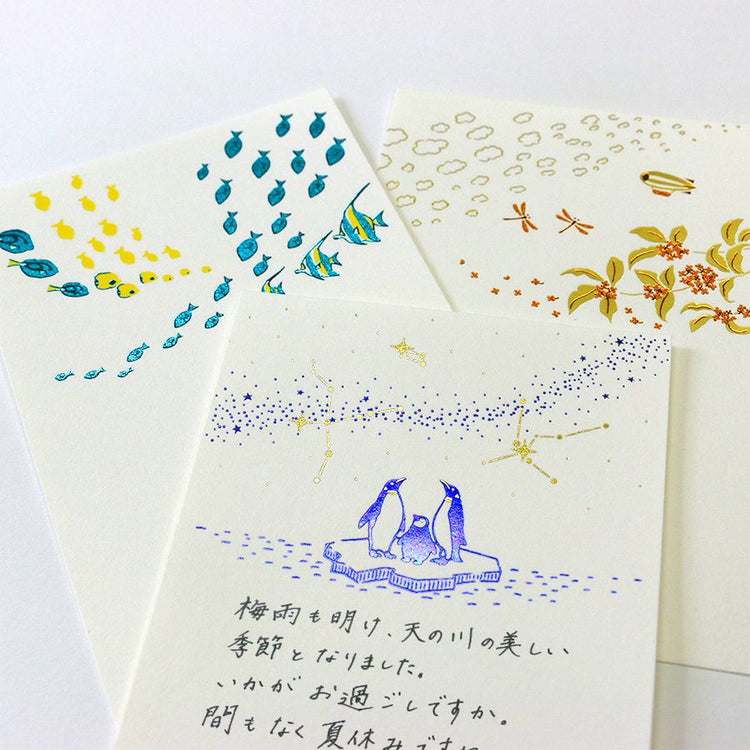 梅雨も明け、天の川の美しい
季節となりました。
いかがお過ごしですか。
間もなく夏休みです